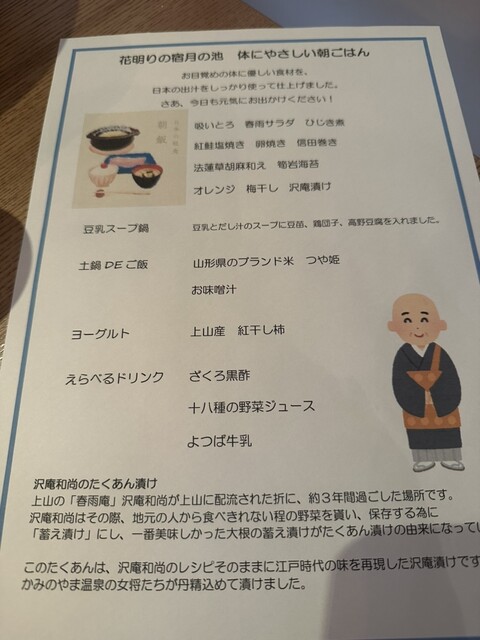 花明りの宿月の池　体にやさしい朝ごはん
お目覚めの体に優しい食材を、
日本の出汁をしっかり使って仕上げました。
さあ、今日も元気にお出かけください！
朝飯
吸いとろ　春雨サラダ　ひじき煮
紅鮭塩焼き　卵焼き　信田巻き
法蓮草胡麻和え　筍岩海苔
オレンジ　梅干し　沢庵漬け
豆乳スープ鍋　豆乳とだし汁のスープに豆苗、鶏団子、高野豆腐を入れました。
土鍋DEご飯　山形県のブランド米　つや姫
お味噌汁
ヨーグルト　上山産　紅干し柿
えらべるドリンク　ざくろ黒酢
十八種の野菜ジュース
よつば牛乳
沢庵和尚のたくあん漬け
上山の「春雨庵」沢庵和尚が上山に配流された折に、約３年間過ごした場所です。
沢庵和尚はその際、地元の人から食べきれない程の野菜を貰い、保存する為に
「蓄え漬け」にし、一番美味しかった大根の蓄え漬けがたくあん漬けの由来になってい
このたくあんは、沢庵和尚のレシピそのままに江戸時代の味を再現した沢庵漬けです
かみのやま温泉の女将たちが丹精込めて漬けました。